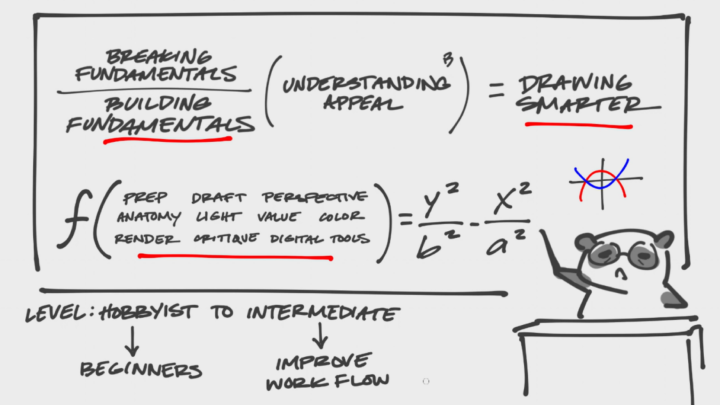 BREAKING
FUNDAMENTALS
BUILDING
FUNDAMENTALS
(UNDERSTANDING³
APPEAL)
= DRAWING
SMARTER
f(PREP DRAFT PERSPECTIVE
ANATOMY LIGHT VALUE COLOR
RENDER CRITIQUE DIGITAL TOOLS)
= y²/b² - x²/a²
LEVEL: HOBBYIST TO INTERMEDIATE
BEGINNERS
IMPROVE
WORK FLOW